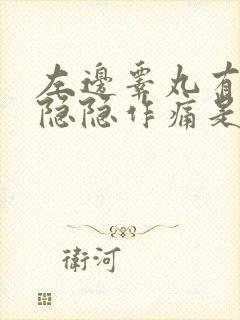 左邊睾丸有
隐隐作痛是
衛河